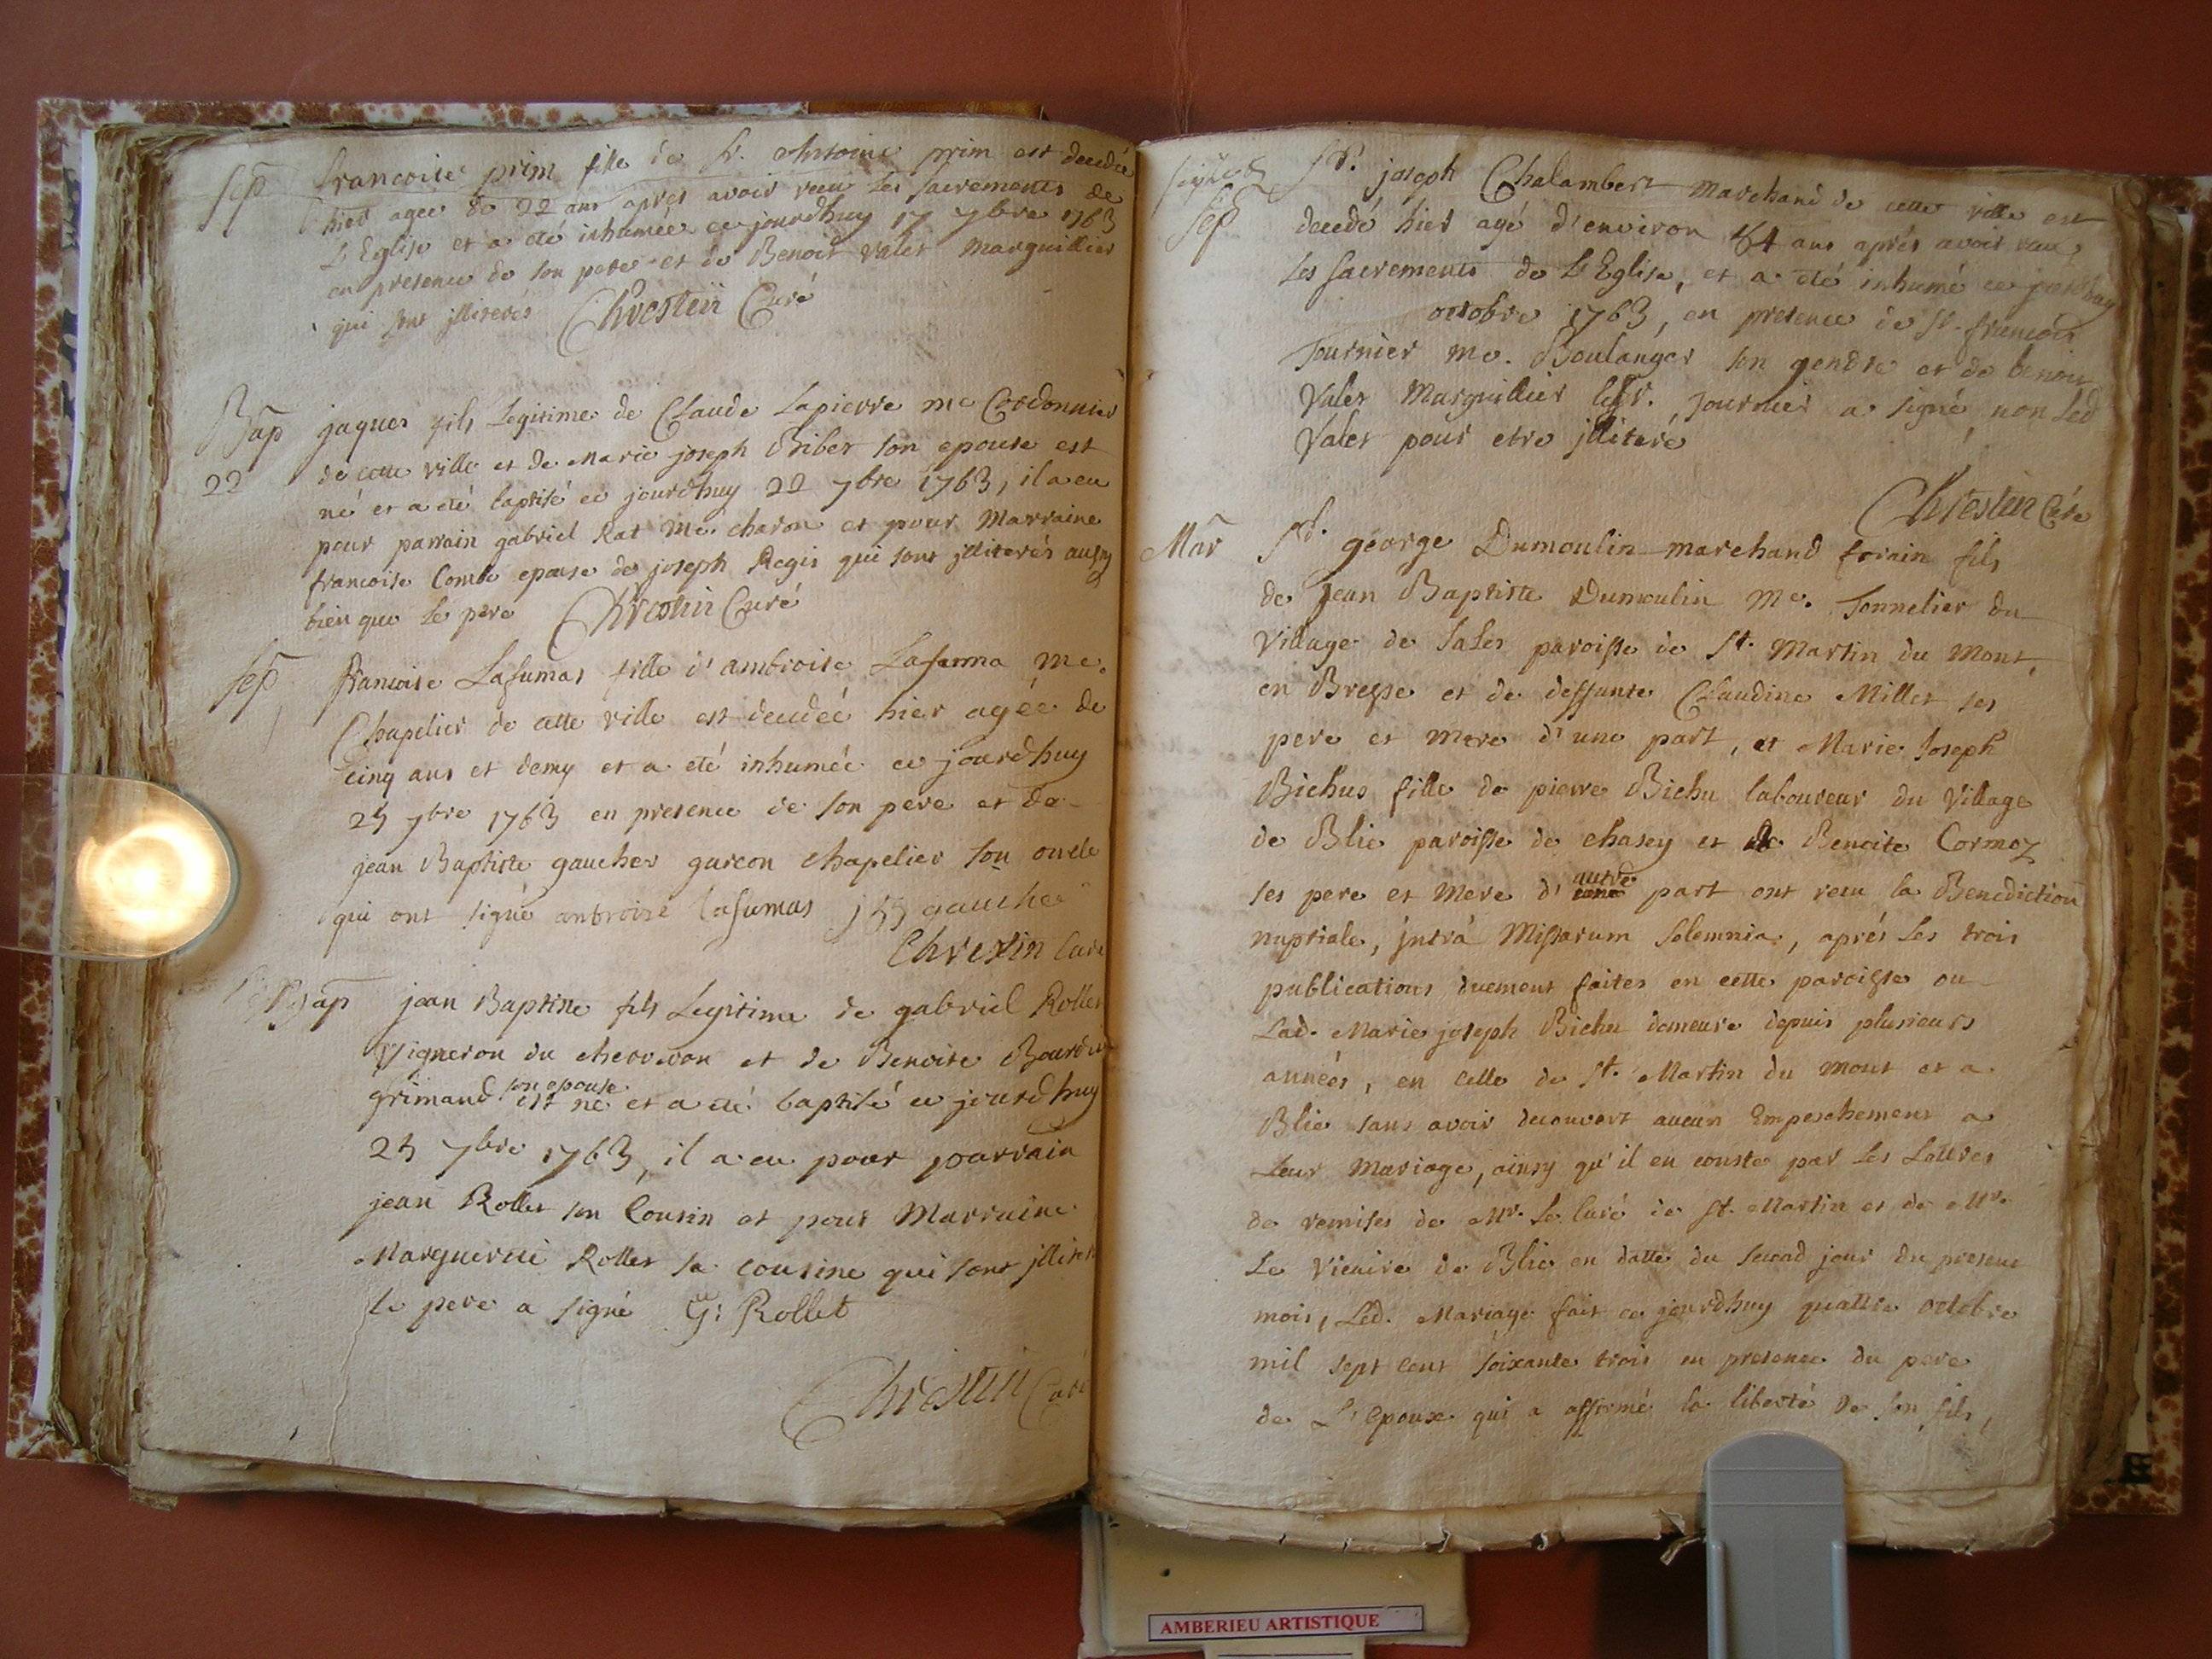 Sep francoise prim fille de Sr. Antoine prim est decedée
hier agee de 22 ans apres avoir recu les sacrements de
L'Eglise et a eté inhumée ce jourdhuy 17 7bre 1763
en presence de son pere et de Benoit valet Marguillier
qui sont jlliterés Chrestin Curé
Bap jaques fils Legitime de Claude Lapierre me Cordonnier
22 de cette ville et de Marie joseph Bibet son epouse est
né et a eté baptisé ce jourdhuy 22 7bre 1763, il a eu
pour parrain gabriel Rat me. charon et pour Marraine
francoise Combe epouse de joseph Regis qui sont jlliterés aussy
bien que le pere Chrestin Curé
sep francoise Lasumas fille d'ambroise Lasuma me.
Chapelier de cette ville est decedeé hier agée de
cinq ans et demy et a eté inhumée ce jourdhuy
25 7bre 1763 en presence de son pere et de
jean Baptiste gaucher garcon chapelier son oncle
qui ont signé anbroise lasumas j b gaucher
Chrestin Curé
Bap jean Baptiste fils Legitime de gabriel Rollet
Vigneron du et de Benoite
grimand son epouse est né et a eté baptisé ce jourdhuy
25 7bre 1763, il a eu pour parrain
jean Rollet son Cousin et pour Marraine
Marguerite Rollet sa cousine qui sont jlliter
le pere a signé G: Rollet
Chrestin Curé
Sr. joseph Chalambert marchand de cette ville est
Sep decedé hier agé d'environ ans aprés avoir recu
les sacrements de L'Eglise, et a eté inhumé ce jourdhuy
octobre 1763, en presence de Sr. francois
Tournier me. Boulanger son gendre et de benoit
Valet Marguillier led Sr. Tournier a signé non led
Valet pour etre jlliteré
Chrestin Curé
Mar Sr. george Dumoulin marchand forain fils
de Jean Baptiste Dumoulin Me. Tonnelier du
Village de Salet paroisse de St. Martin du Mont,
en Bresse et de deffunte Claudine Millet ses
pere et mere d'une part, et Marie Joseph
Bichus fille de pierre Bichu laboureur du Village
de Blie paroisse de chasey et de Benoite Cormoz
ses pere et Mere d'autre part ont recu la Benediction
nuptiale, jntrà Missarum solemnia, aprés les trois
publications duement faites en cette paroisse ou
Lad. Marie joseph Bichu demeure depuis plusieurs
années, en celle de St. Martin du mont et a
Blie sans avoir decouvert aucun Empeschement a
leur Mariage, ainsy qu'il en conste par les Lettres
de remises de Mr. Le Curé de St. Martin et de Mr.
Le Vicaire de Blie en datte du second jour du present
mois, Led. Mariage fait ce jourdhuy quattre octobre
mil sept cent soixante trois en presence du pere
de L'Epoux qui a affirmé la liberté de son fils,
AMBERIEU ARTISTIQUE